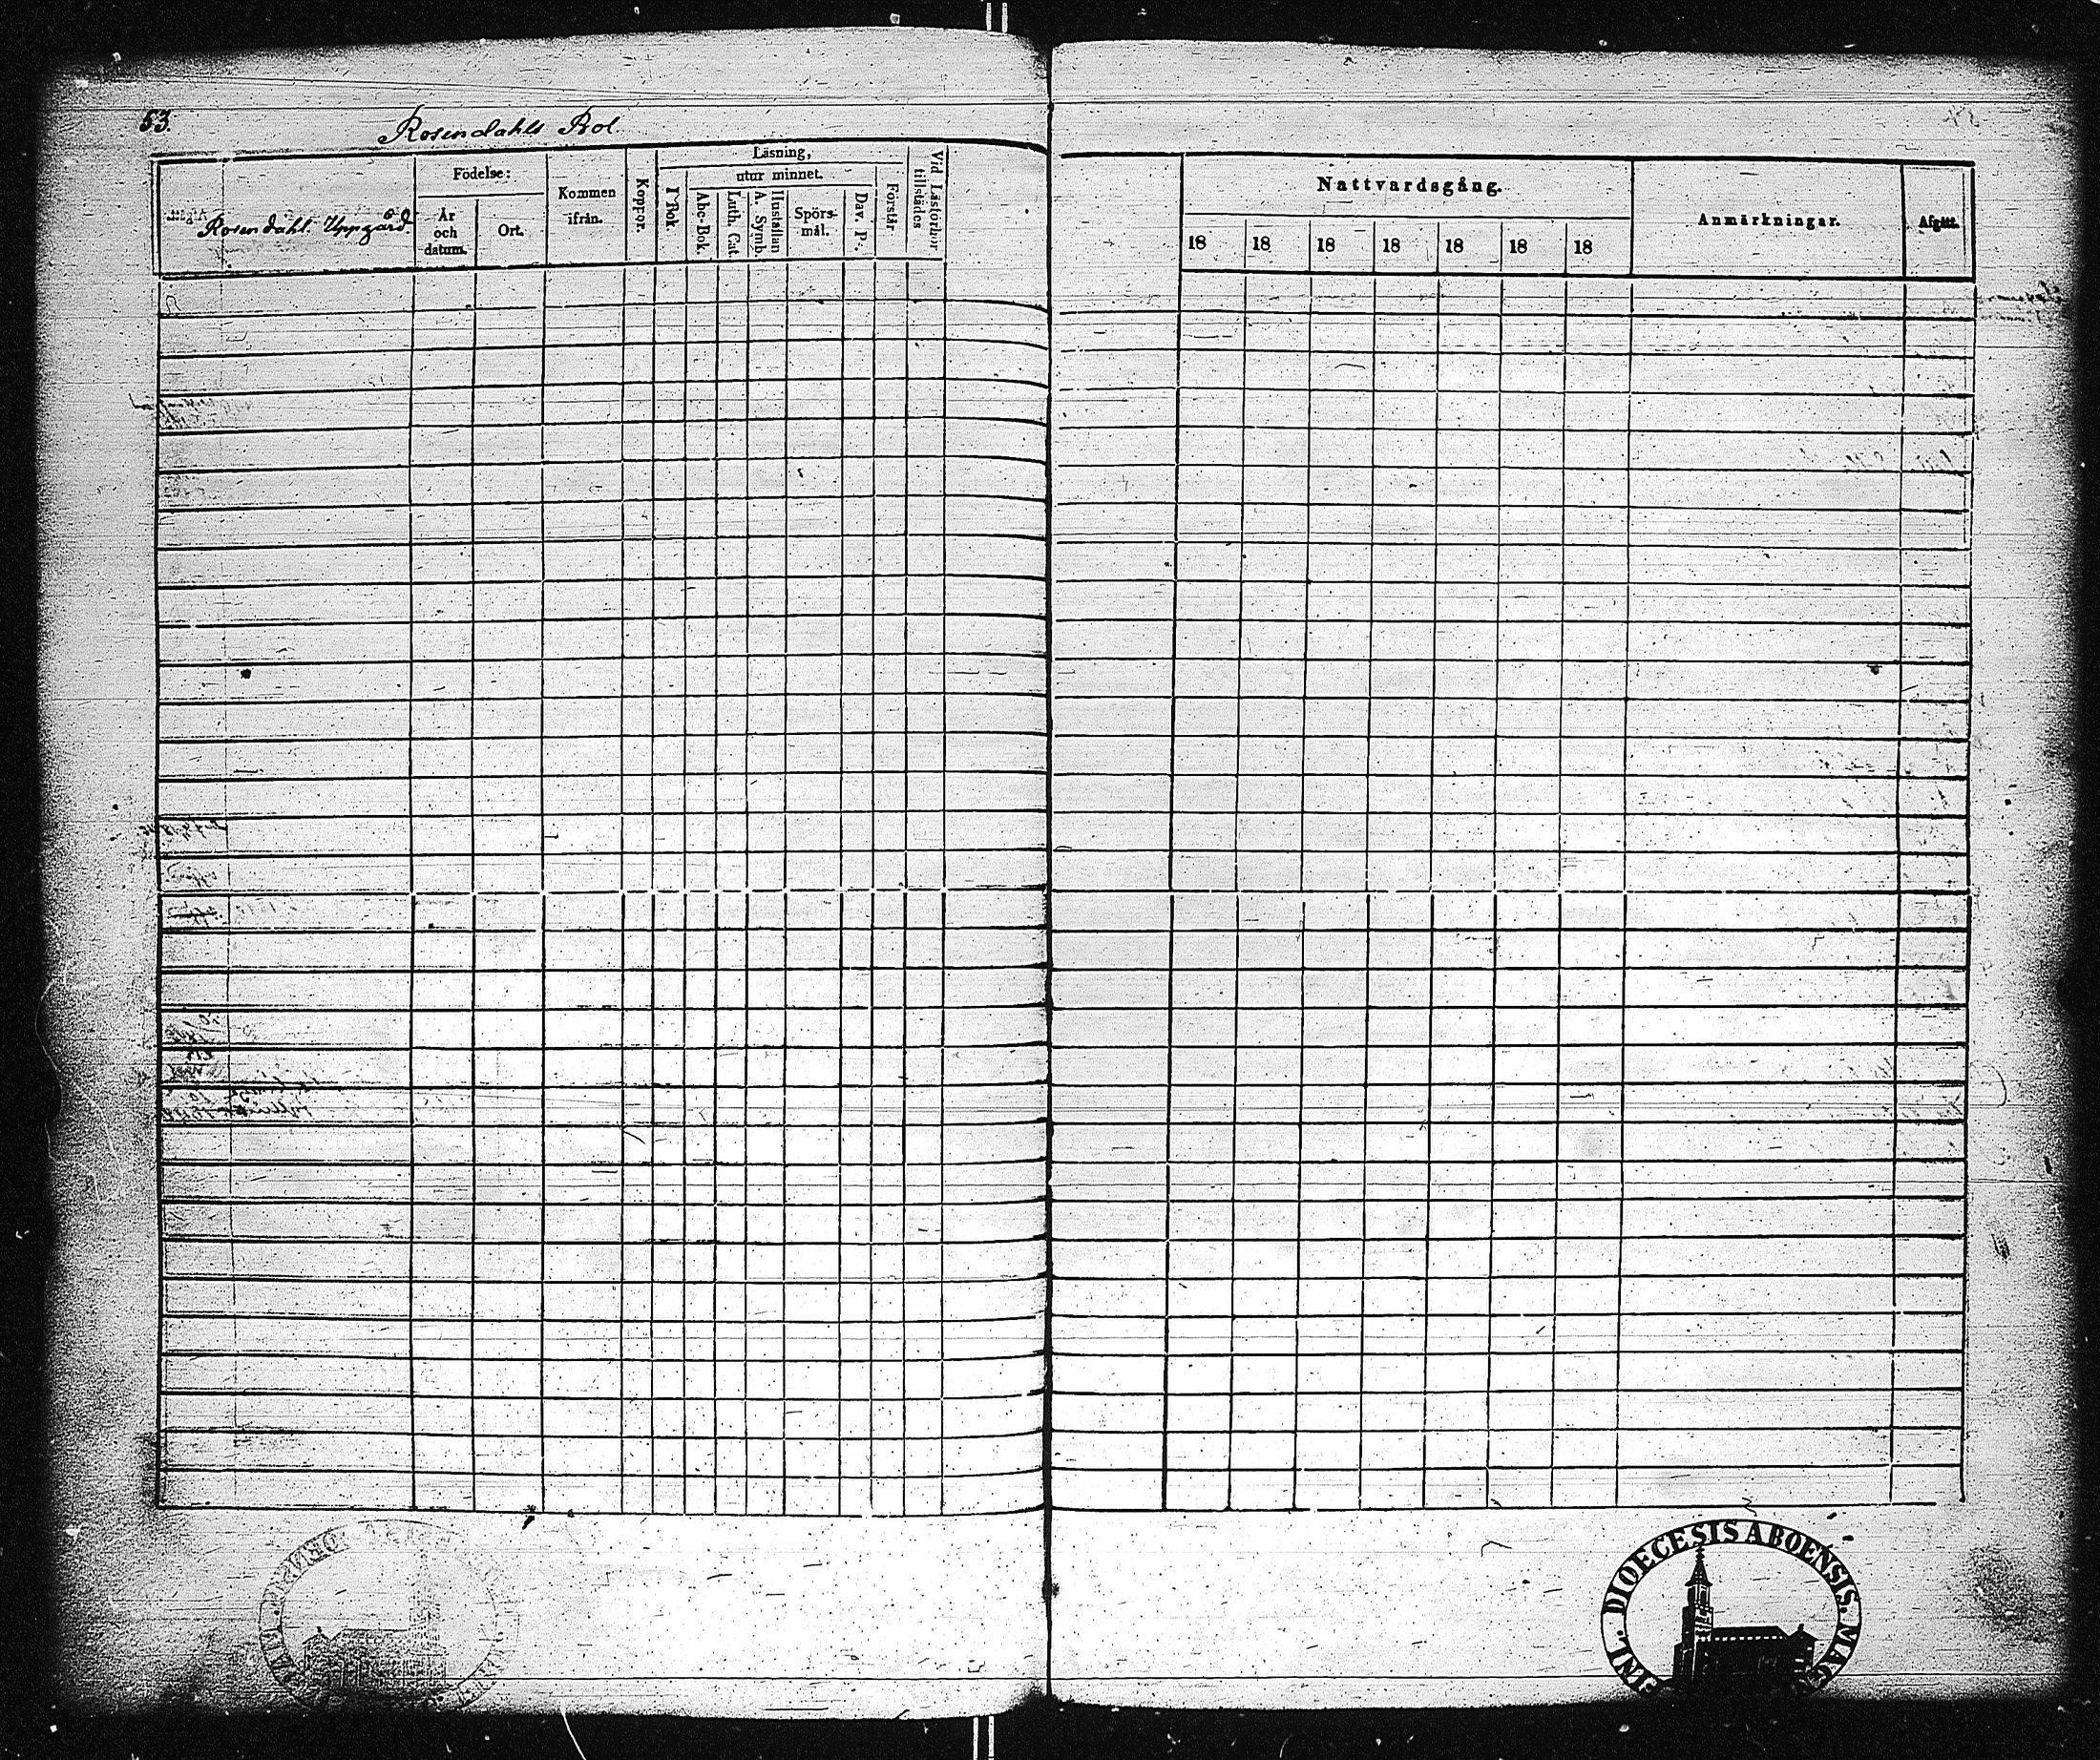 53.
Rosendahls Bol.
Rosendahl. Uppgård.
Födelse:
År och datum.
Ort.
Kommen ifrån.
Koppor.
Läsning,
I Bok.
utur minnet.
Abc-Bok.
Luth. Cat.
Hustaflan A. Symb.
Spörsmål.
Dav. P.
Förstår
Vid Läsförhör tillstädes
Nattvardsgång.
18 18 18 18 18 18 18
Anmärkningar.
Afgått.
DIOECESIS ABOENSIS. MAG